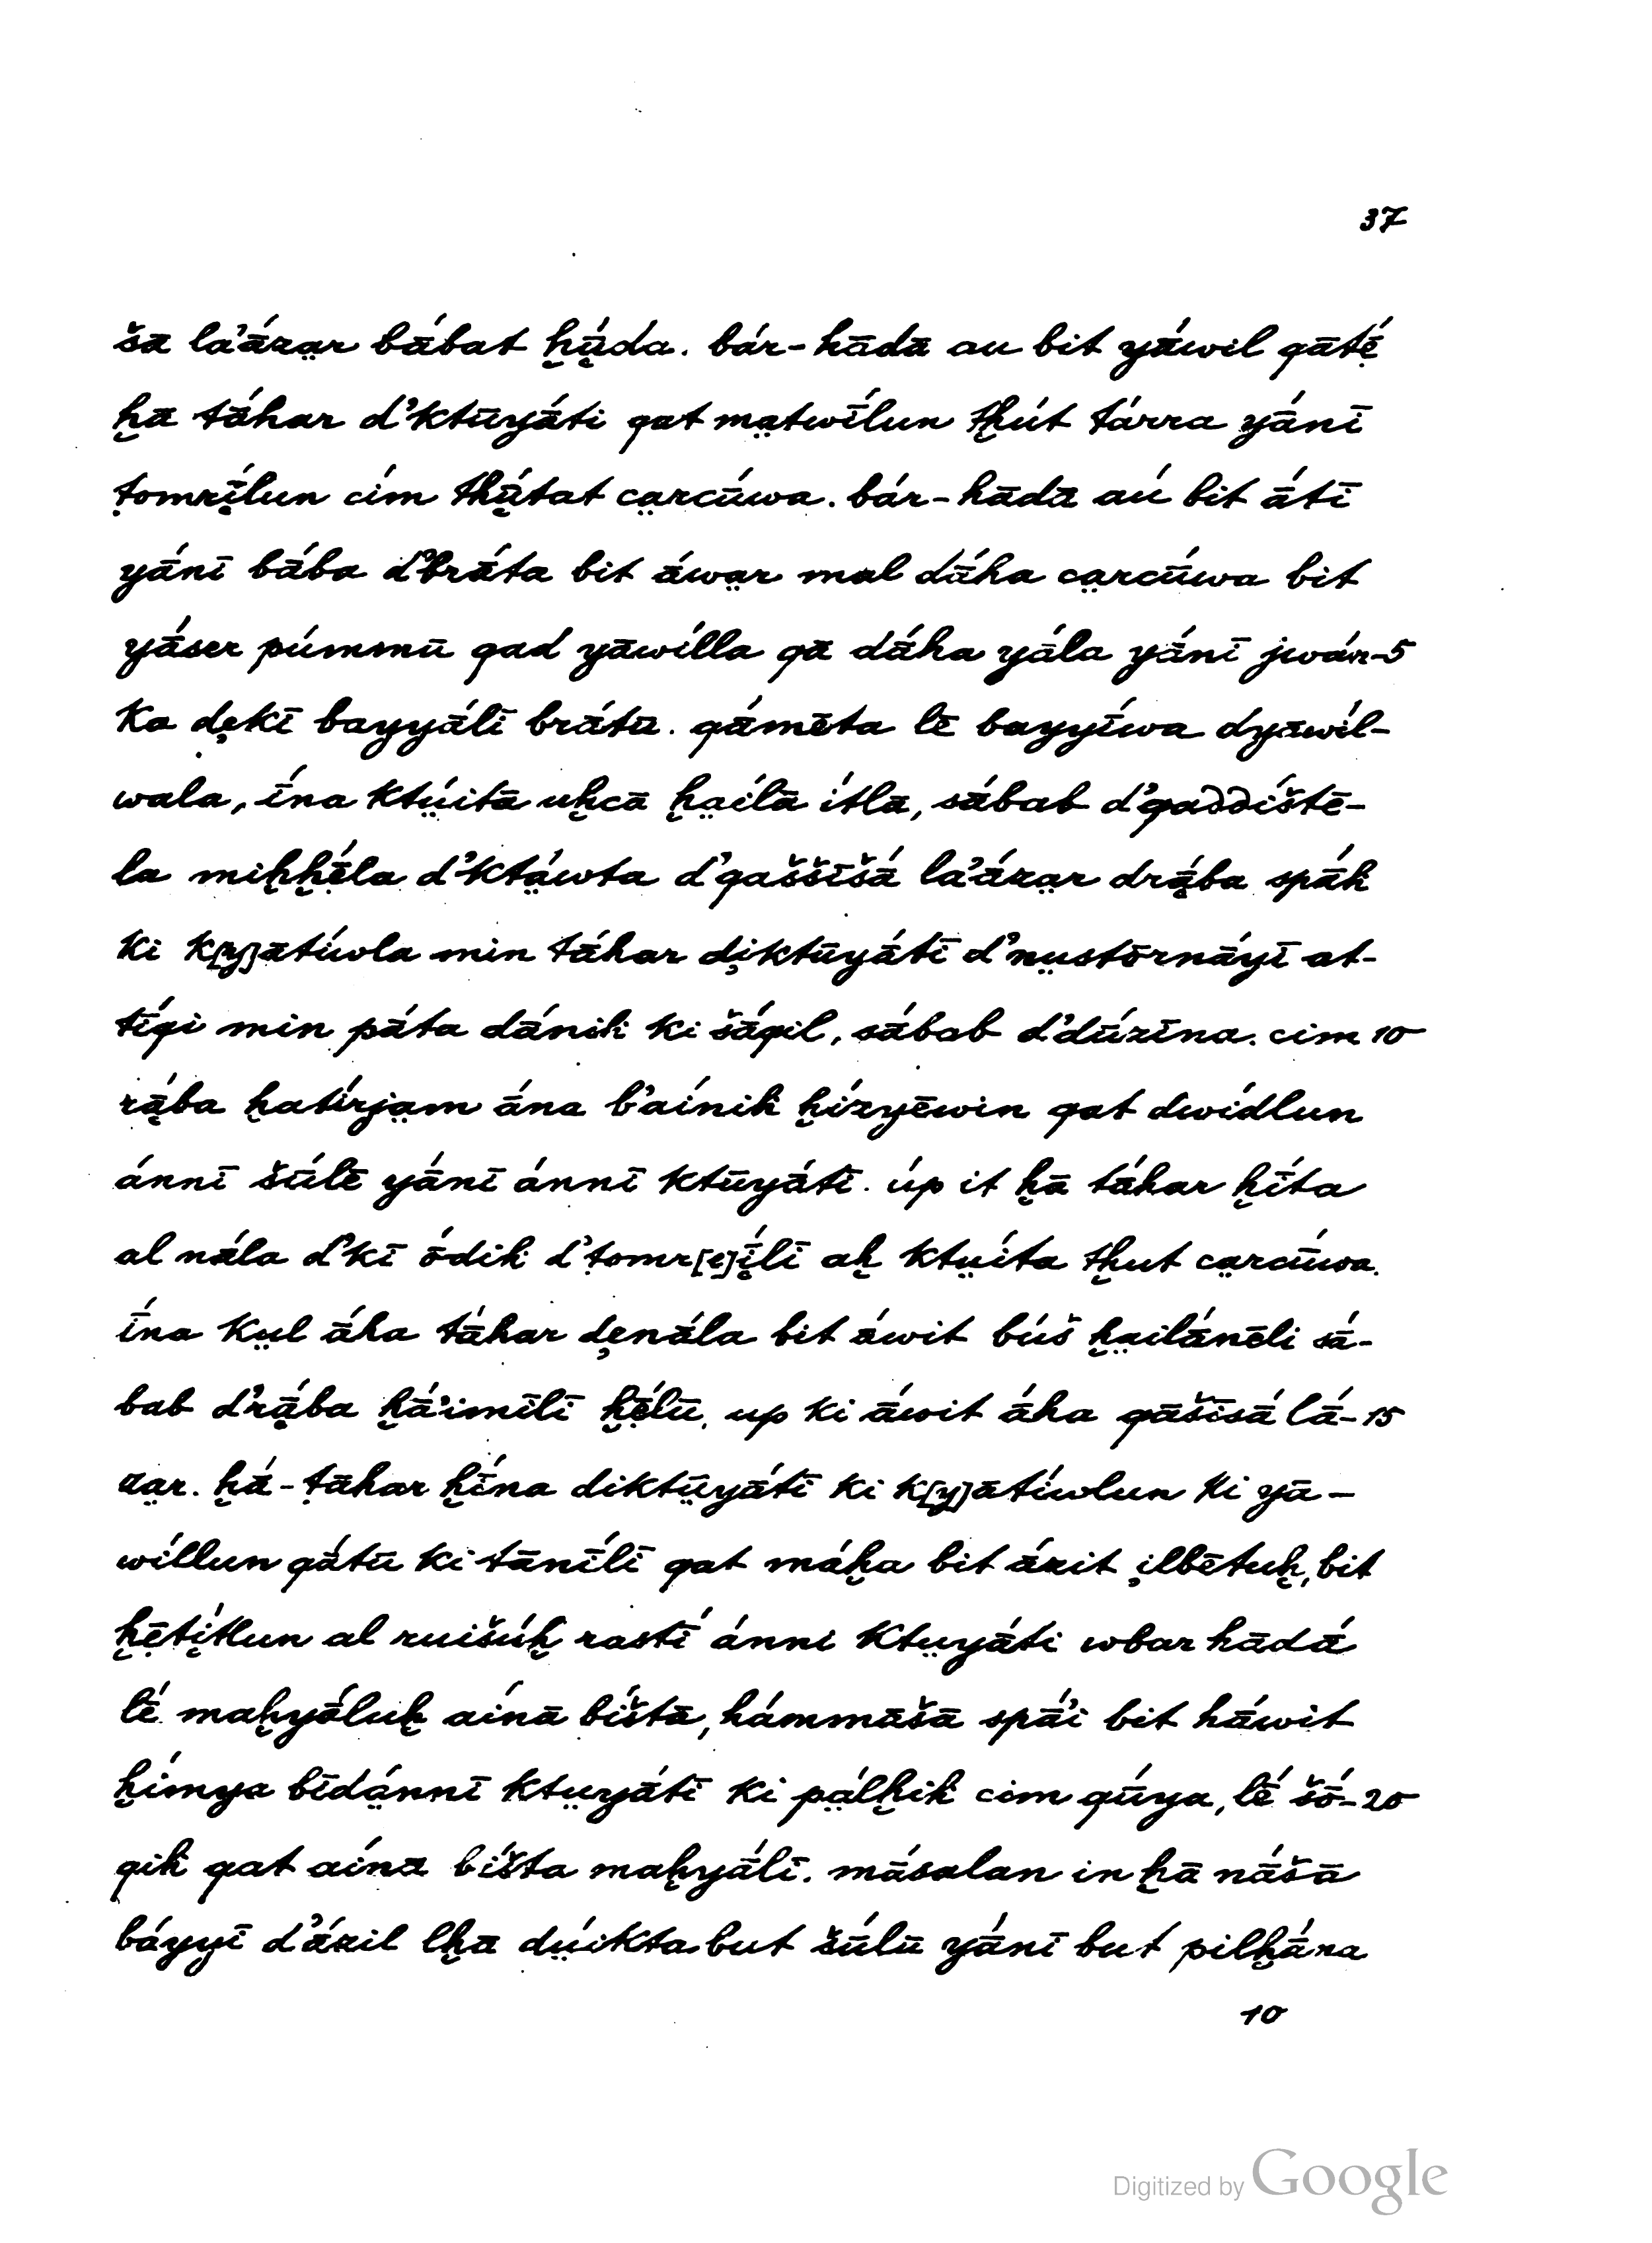 37
šā la’ā́zạ̈r bā́bat ḫụ̄́da. bár-hādā au bit yā́wil qātẹ́
ḫā tā́har d’ktūyā́ti qat mạ̈twī́lun tḫút tárra yā́nī
ṭomrị̄́lun cím tḫụ̄́tat cạ̈rcū́wa. bár-hādā aú bit ā́tī
yā́nī bā́ba d’brā́ta bit ā́wạ̈r mal dā́ha cạ̈rcū́wa bit
yā́ser púmmū qad yāwílla qā dā́ha yā́la yā́nī jwán-5
ka dẹkī bayyā́lī brā́tū. qā́mēta lē bayyī́wa dyāwíl-
wala, ī́na ktụ̈́itā uḫcā ḫạ̈ílā ítlā, sā́bab d’qaddíštē-
la miḫḫẹ̄́la d’ktạ̈́wta d’qaššīšā́ la’ā́zạ̈r drạ̄́ba spā́h
ki k[y]ātíwla min tā́har dịktūyā́tī d’nụ̈stōrnā́yī at-
tī́qi min pā́ta dā́nih ki šā́qil, sā́bab d’dū́zīna. cim 10
rạ̄́ba ḫatírjạ̈m ā́na b’aínih ḫízyēwin qat dwídlun
ánnī šū́lē yā́nī ánnī ktūyā́tī. úp it ḫā tā́har ḫī́ta
al nā́la d’kī ṓdih d’ṭomr[e]ị̄́lī aḫ ktụ̈íta tḫut cạ̈rcū́wa.
ī́na kụ̈l ā́ha tā́har dẹnā́la bit ā́wit búš ḫạ̈ilā́nēli sā́-
bab d’rạ̄́ba ḫā́’imīlī ḫẹ̄́lū, up ki ā́wit ā́ha qāšīšā́ lā́- 15
zạ̈r. ḫā́-ṭāhar ḫī́na diktụ̈yā́tī ki k[y]ātíwlun ki yā-
wíllun qā́tū ki tānī́lī qat máḫa bit ā́zit ịlbētuḫ, bit
ḫẹ̄tị́tlun al ruišúḫ rastī́ ánni ktụ̈yā́ti wbar hādā́
lḗ maḫyā́luḫ aínā bíštā, hámmāšā spā́’i bit hā́wit
ḫímya bīdạ̈́nnī ktụ̈yā́tī ki pạ̈́lḫih cim qū́ya, lḗ šṓ- 20
qih qat aínā bíšta maḫyā́lī. mā́salan in ḫā nā́šā
báyyī d’ā́zil lḫā dụ̈́ikta but šū́lū yā́nī but pilḫā́na
10
Digitized by Google